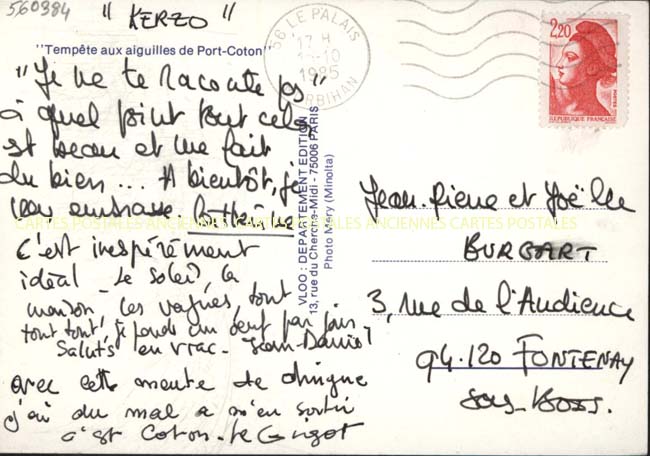 560984
" KERZO "
"Tempête aux aiguilles de Port-Coton"
"Je ne te raconte pas"
à quel point tout cela
est beau et me fait
du bien... A bientôt, je
vous embrasse
C'est inespérément
idéal - le soleil, la
maison, les vagues, tout
tout tout, je ponds un oeuf par jour
Saluts en vrac - Jean-Daniel
avec cette meute de dingue
j'ai du mal a m'en sortir
56 LE PALAIS
17 H
10
1985
MORBIHAN
2,20
POSTES
REPUBLIQUE FRANCAISE
VLOO : DEPARTEMENT EDITION
13, rue du Cherche-Midi - 75006 PARIS
Photo Méry (Minolta)
Jean-Pierre et Joëlle
BURGART
3, rue de l'Audience
94.120 FONTENAY
Sous-Bois.
CARTES POSTALES ANCIENNES CARTES POSTALES ANCIENNES CARTES POSTALES